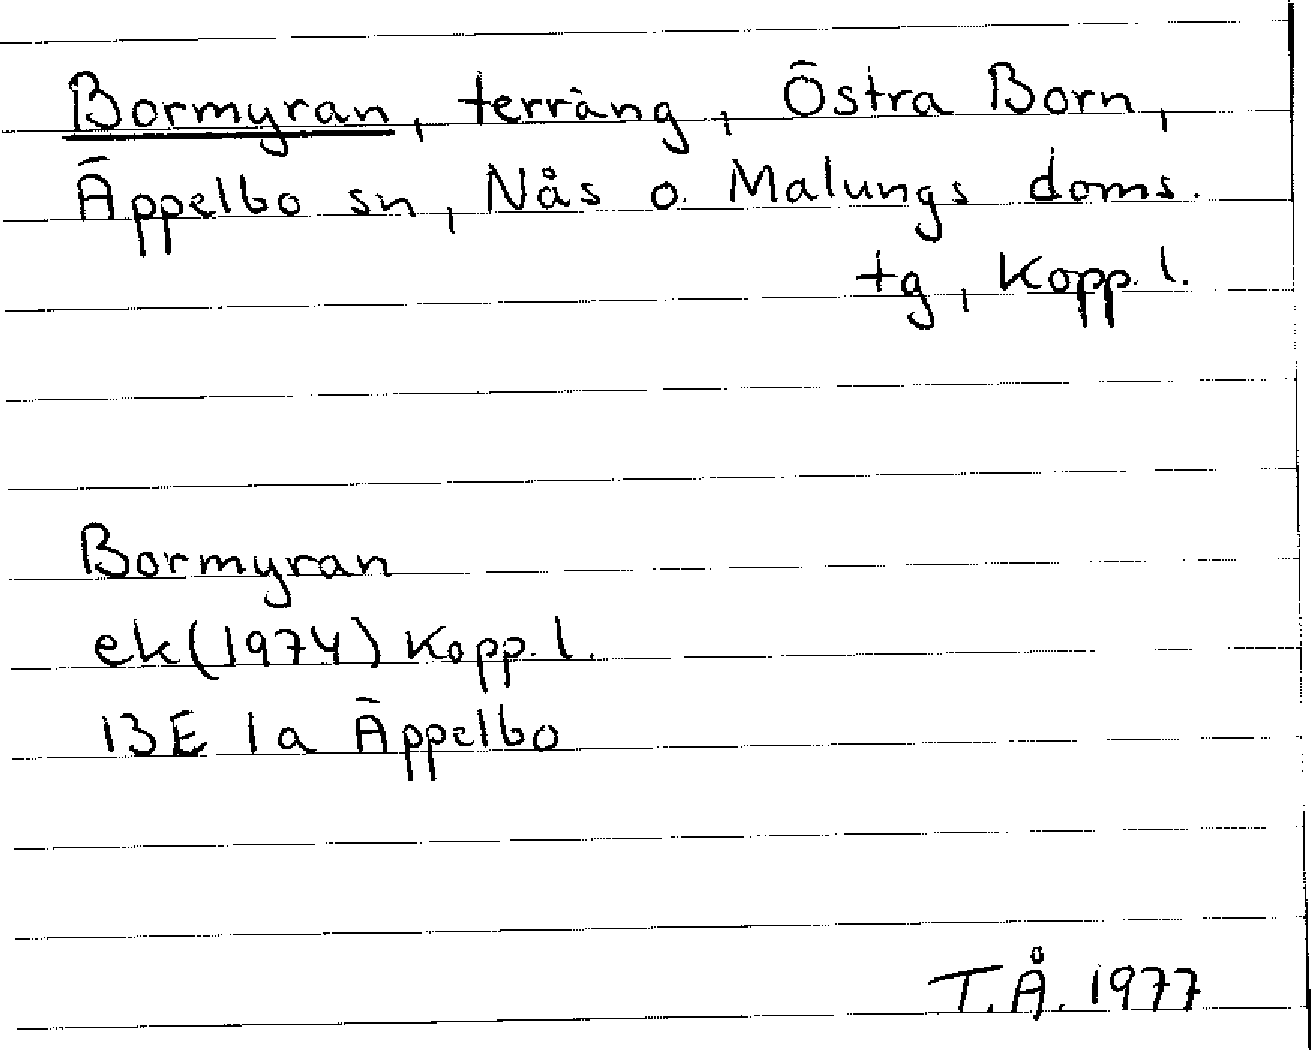 Bormyran, terräng, Östra Born,
Äppelbo sn, Nås o. Malungs doms.
tg, Kopp. l.
Bormyran
ek (1974) Kopp. l.
13E 1a Äppelbo
T.Å. 1977